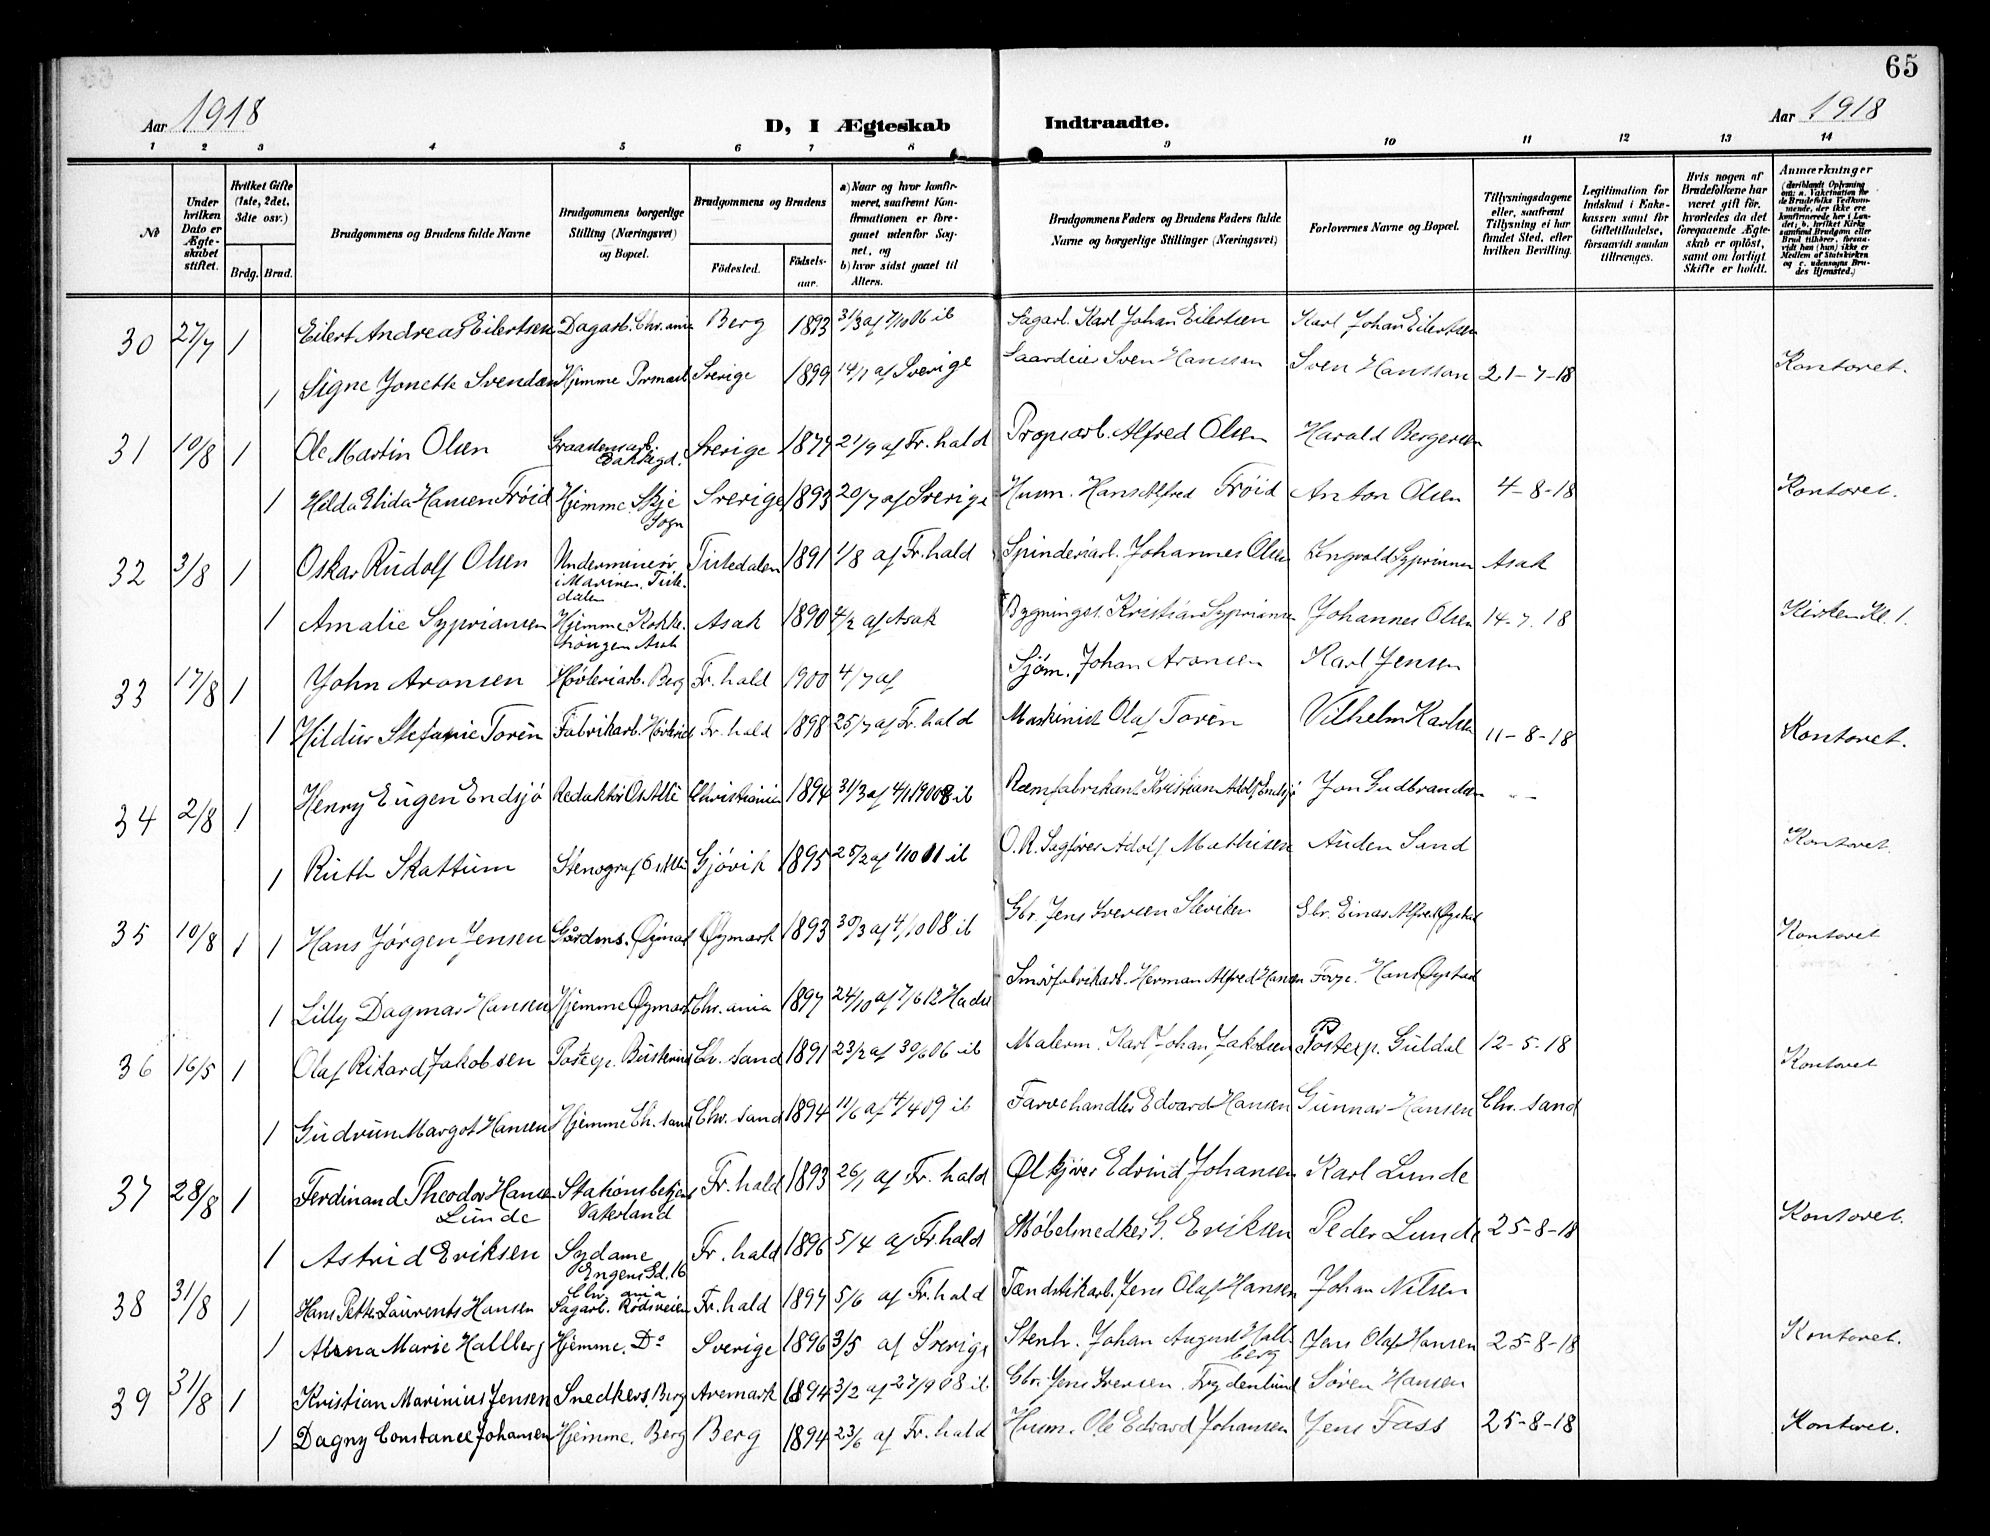 65
Aar 1918
D, I Ægteskab Indtraadte.
Aar 1918
1 2 3 4 5 6 7 8 9 10 11 12 13 14
No
Under hvilken Dato er Ægteskabet stiftet.
Hvilket Gifte (1ste, 2det, 3dte osv.)
Brdg. Brud.
Brudgommens og Brudens fulde Navne
Brudgommens borgerlige Stilling (Næringsvei) og Bopæl.
Brudgommens og Brudens
Födested. Födselsaar.
a) Naar og hvor konfirmeret, saafremt Konfirmationen er foregaaet udenfor Sognet, og
b) hvor sidst gaaet til Alters.
Brudgommens Faders og Brudens Faders fulde Navne og borgerlige Stillinger (Næringsvei)
Forlovernes Navne og Bopæl.
Tillysningsdagene eller, saafremt Tillysning ei har fundet Sted, efter hvilken Bevilling.
Legitimation for Indskud i Enkekassen samt for Giftetilladelse, forsaavidt saadan tiltrænges.
Hvis nogen af Brudefolkene har været gift för, hvorledes da det foregaaende Ægteskab er oplöst, samt om lovligt Skifte er holdt.
Anmærkninger
(deriblandt Oplysning om: a. Vakcination for de Brudefolks Vedkommende, der ikke ere konfirmerede her i Landet; b. hvilket Kirkesamfund Brudgom eller Brud tilhörer, forsaavidt han (hun) ikke er Medlem af Statskirken og c. udensogns Brudes Hjemsted.)
30 27/7 1 Eilert Andreas Eilertsen Dagarb. Chr.ania Berg 1893 31/3 af 7/10 06 ib Sagarb. Karl Johan Eilertsen Karl Johan Eilertsen
1 Signe Jonette Svendsen Hjemme Sverige 1899 14/7 af Sverige Sven Hansson Sven Hansson 21-7-18 Kontoret.
31 10/8 1 Ole Martin Olsen Sverige 1877 21/9 af Fr.hald Alfred Olsen Harald Bergersen
1 Hilda Elida Hansen Fröid Hjemme. Skje Sogn Sverige 1893 20/7 af Sverige Husm. Hans Alfred Fröid Anton Olsen 4-8-18 Kontoret.
32 3/8 1 Oskar Rudolf Olsen Underminör i Marinen. Tistedalen Tistedalen 1891 1/8 af Fr.hald Spinderiarb. Johannes Olsen Asak
1 Amalie Sypriansen Hjemme. Asak Asak 1890 4/2 af Asak Bygningss. Kristian Sypriansen Johannes Olsen 14-7.18 Kirken Kl. 1.
33 17/8 1 John Aronsen Høvleriarb. Berg Fr.hald 1900 4/7 af Sjöm. Johan Aronsen Karl Jensen
1 Hildur Stefanie Torén Fabrikarb. Fr.hald 1898 25/7 af Fr.hald Maskinist Olaf Torén Vilhelm Karlsen 11-8-18 Kontoret.
34 2/8 1 Henry Eugen Endsjö Redaktör Christiania 1894 31/3 af 4/1 1908 ib Remfabrikant Kristian Adolf Endsjö Jon Gudbrandsen — —
1 Ruth Skattum Stenograf Gjövik 1895 25/2 af 1/10 11 ib O.R. Sagförer Adolf Mathisen Auden Sand Kontoret.
35 10/8 1 1 Hans Jörgen Jensen Gårdms. Øymark Øymark 1893 30/3 af 4/10 08 ib Gbr. Jens Iversen Sleviken Gbr. Einar Alfred Øystad Kontoret
1 Lilly Dagmar Hansen Hjemme Øymark Chr.ania 1897 24/10 af 7/6 12 Smörfabrikarb. Herman Alfred Hansen Hans Øystad
36 16/5 1 Olaf Rikard Jakobsen Postexp. Buskerud Chr.sand 1891 23/2 af 30/6 06 ib Malerm. Karl Johan Jakobsen Postexp. Guldal 12-5-18 Kontoret
1 Gudrun Margot Hansen Hjemme Ch.sand Chr.sand 1894 11/6 af 4/4 09 ib Farvehandler Edvard Hansen Gunnar Hansen Chr.sand
37 28/8 1 Ferdinand Theodor Hansen Lunde Stationsbetjent Vaterland Fr.hald 1893 26/1 af Fr.hald Ølkjörer Edvind Johansen Karl Lunde
1 Astrid Eriksen Sydame Engens Gd. 16 Fr.hald 1896 5/4 af Fr.hald Möbelsnedker G. Eriksen Peder Lunde 25-8-18 Kontoret.
38 31/8 1 Hans Petter Laurents Hansen Sagarb. Rödsveien Chr.ania Fr.hald 1897 5/6 af Fr.hald Tændstikarb. Jens Olaf Hansen Johan Nilsen
1 Anna Marie Hallberg Hjemme. Do Sverige 1896 3/5 af Sverige Stenh. Johan August Hallberg Jens Olaf Hansen 25-8-18 Kontoret.
39 31/8 1 Kristian Marinius Jensen Snedkers. Berg Aremark 1894 3/2 af 27/9 08 ib Gbr. Jens Iversen Frydenlund Sören Hansen
1 Dagny Constance Johansen Hjemme. Berg Berg 1894 23/6 af Fr.hald Husm. Ole Edvard Johansen Jens Fass 25-8-18 Kontoret.